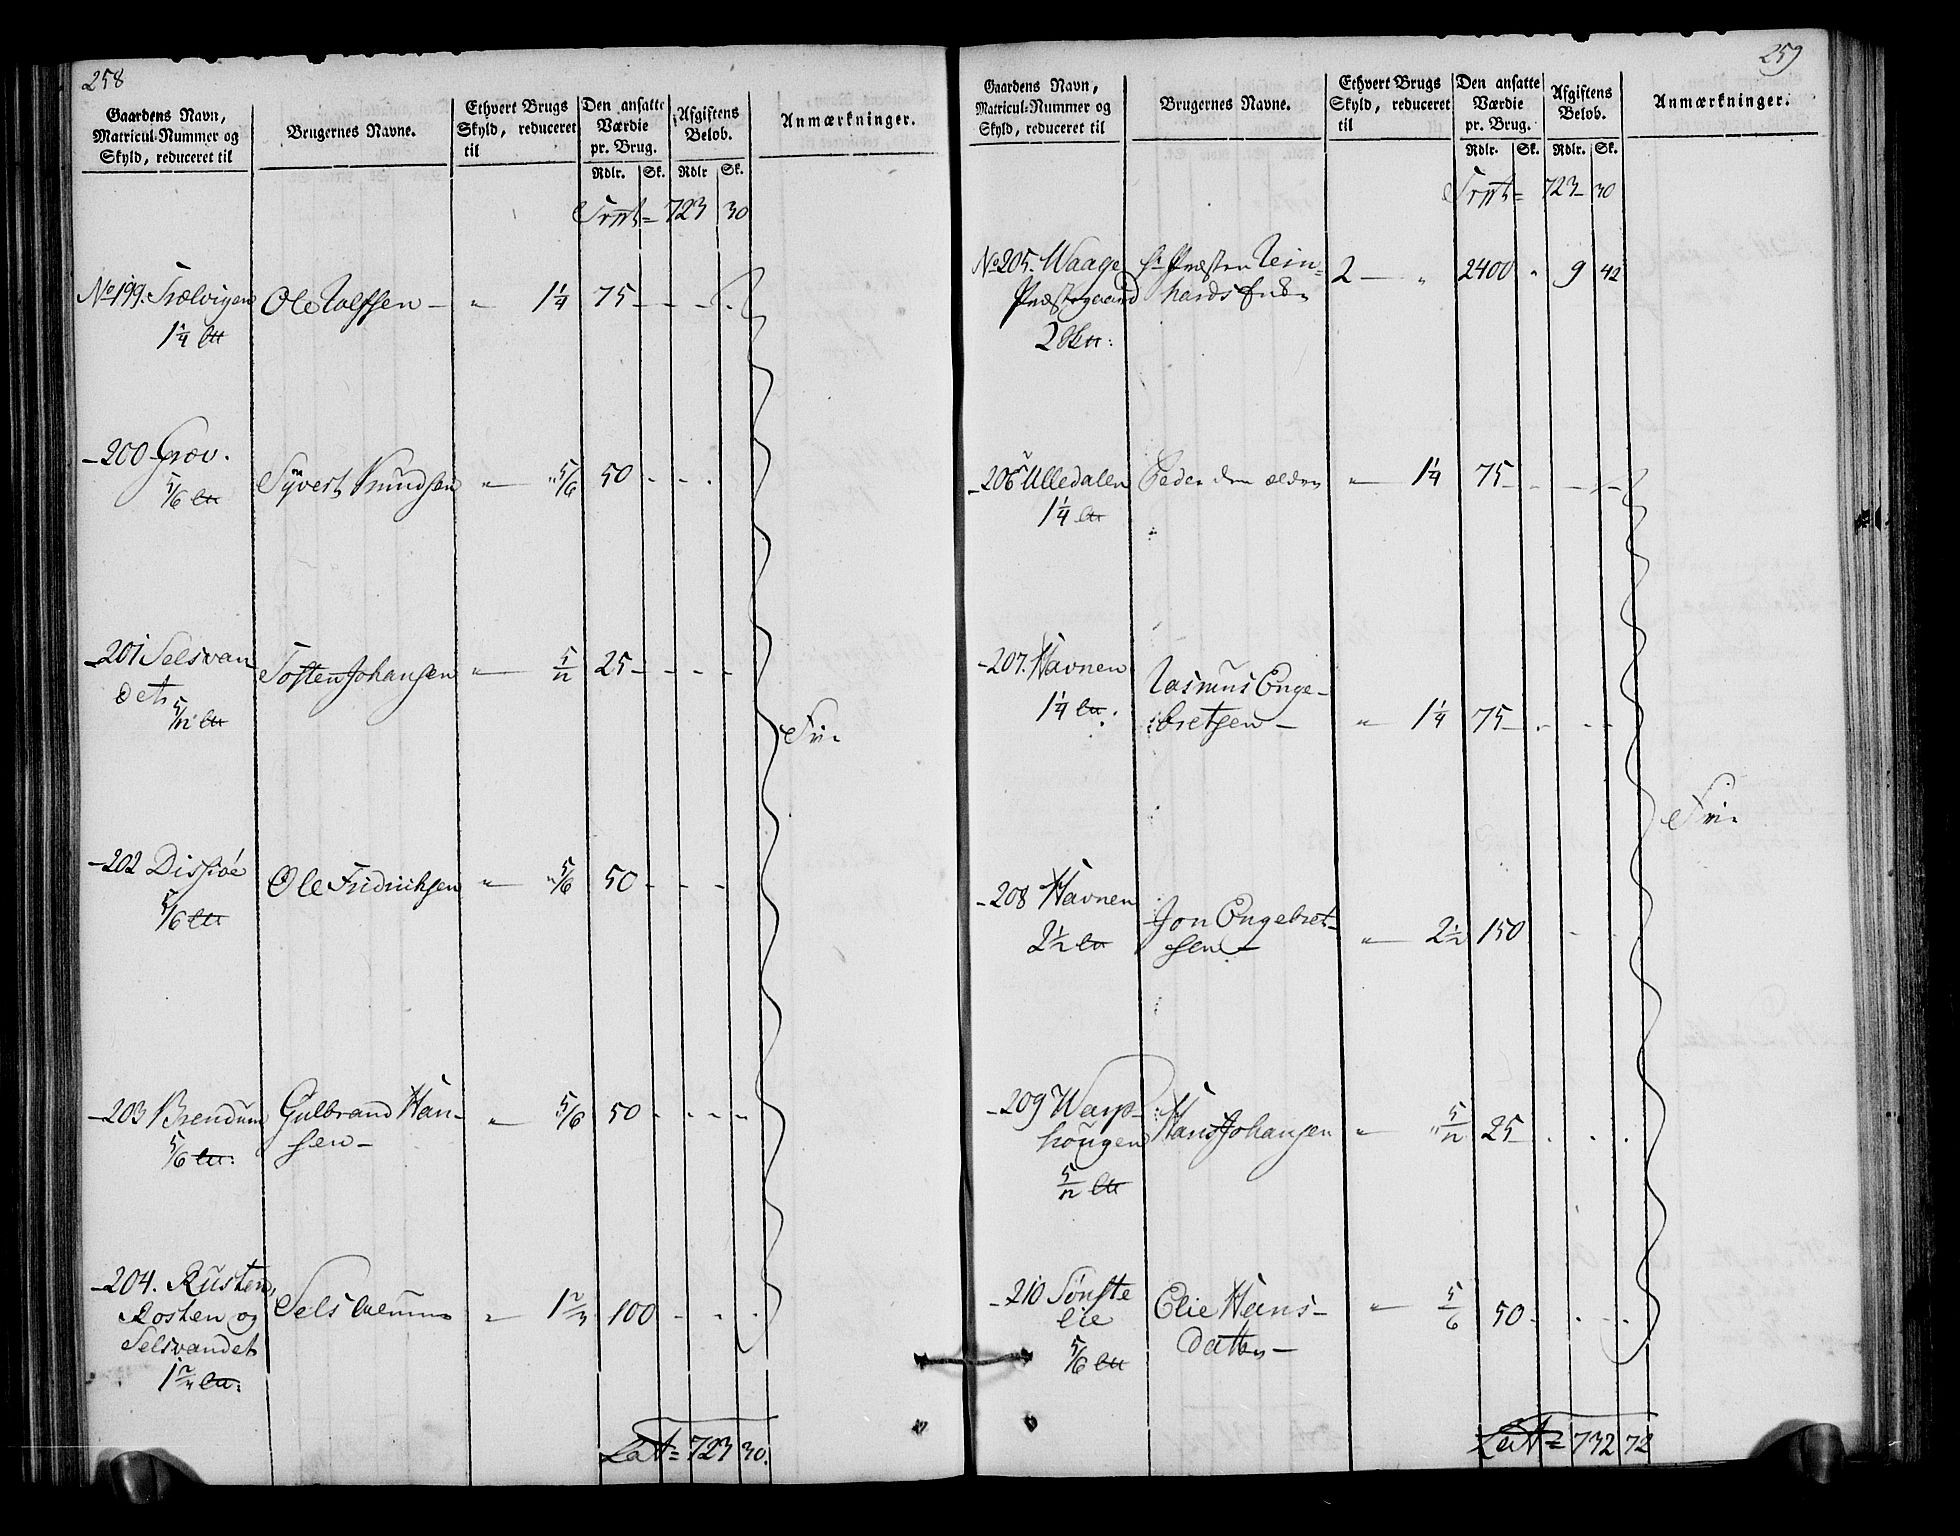 258
Gaardens Navn,
Matricul-Nummer og
Skyld, reduceret til
Brugernes Navne.
Ethvert Brugs
Skyld, reduceret
til
Den ansatte
Værdie
pr. Brug.
Rdlr. Sk.
Afgiftens
Beløb.
Rdlr Sk.
Anmærkninger.
Trspt= 723 30
No 199. Trælvigen Ole Rolfsen — " 1¼ 75 — — — .
1¼ 
- 200 Græv. Syvert Knudsen " — " 5/6 50 - - .
5/6 
- 201 Selsvan Tosten Johansen " — 5/12 25 — — - -
det
5/12 
Fri
- 202 Dissiøe Ole Fridrichsen " — " 5/6 50 - - -
5/6 
- 203 Brendum Gulbrand Han-
sen — " — 5/6 50 - - - -
5/6 
- 204. Rusten, Sels " — 1 2/3 100 - - .
Rosten og
Selsvandet
1 2/3 
Lat= 723 30.
259
Gaardens Navn,
Matricul-Nummer og
Skyld, reduceret til
Brugernes Navne.
Ethvert Brugs
Skyld, reduceret
til
Den ansatte
Værdie
pr. Brug.
Rdlr. Sk.
Afgiftens
Beløb.
Rdlr. Sk.
Anmærkninger.
Trspt= 723 30
No 205. Waage Hr Præsten Rein=
Præstegaard hards 2 — " 2400 " 9 42
2
- 206 Ulledalen Peder den ældre " — 1¼ 75 — - — -
1¼ 
- 207. Havnen Rasmus Enge-
1¼ bretsen — " 1¼ 75 — - - -
Fri
- 208 Havnen Jon Engebret-
2½ sen — " — 2½ 150 - -
- 209 Warp- Hans Johansen " — " 5/12 25 — . . .
hougen
5/12 
- 210 Sønste Elie Hans-
lie Datter — " — 5/6 50 - . - .
5/6 
Lat= 732 72